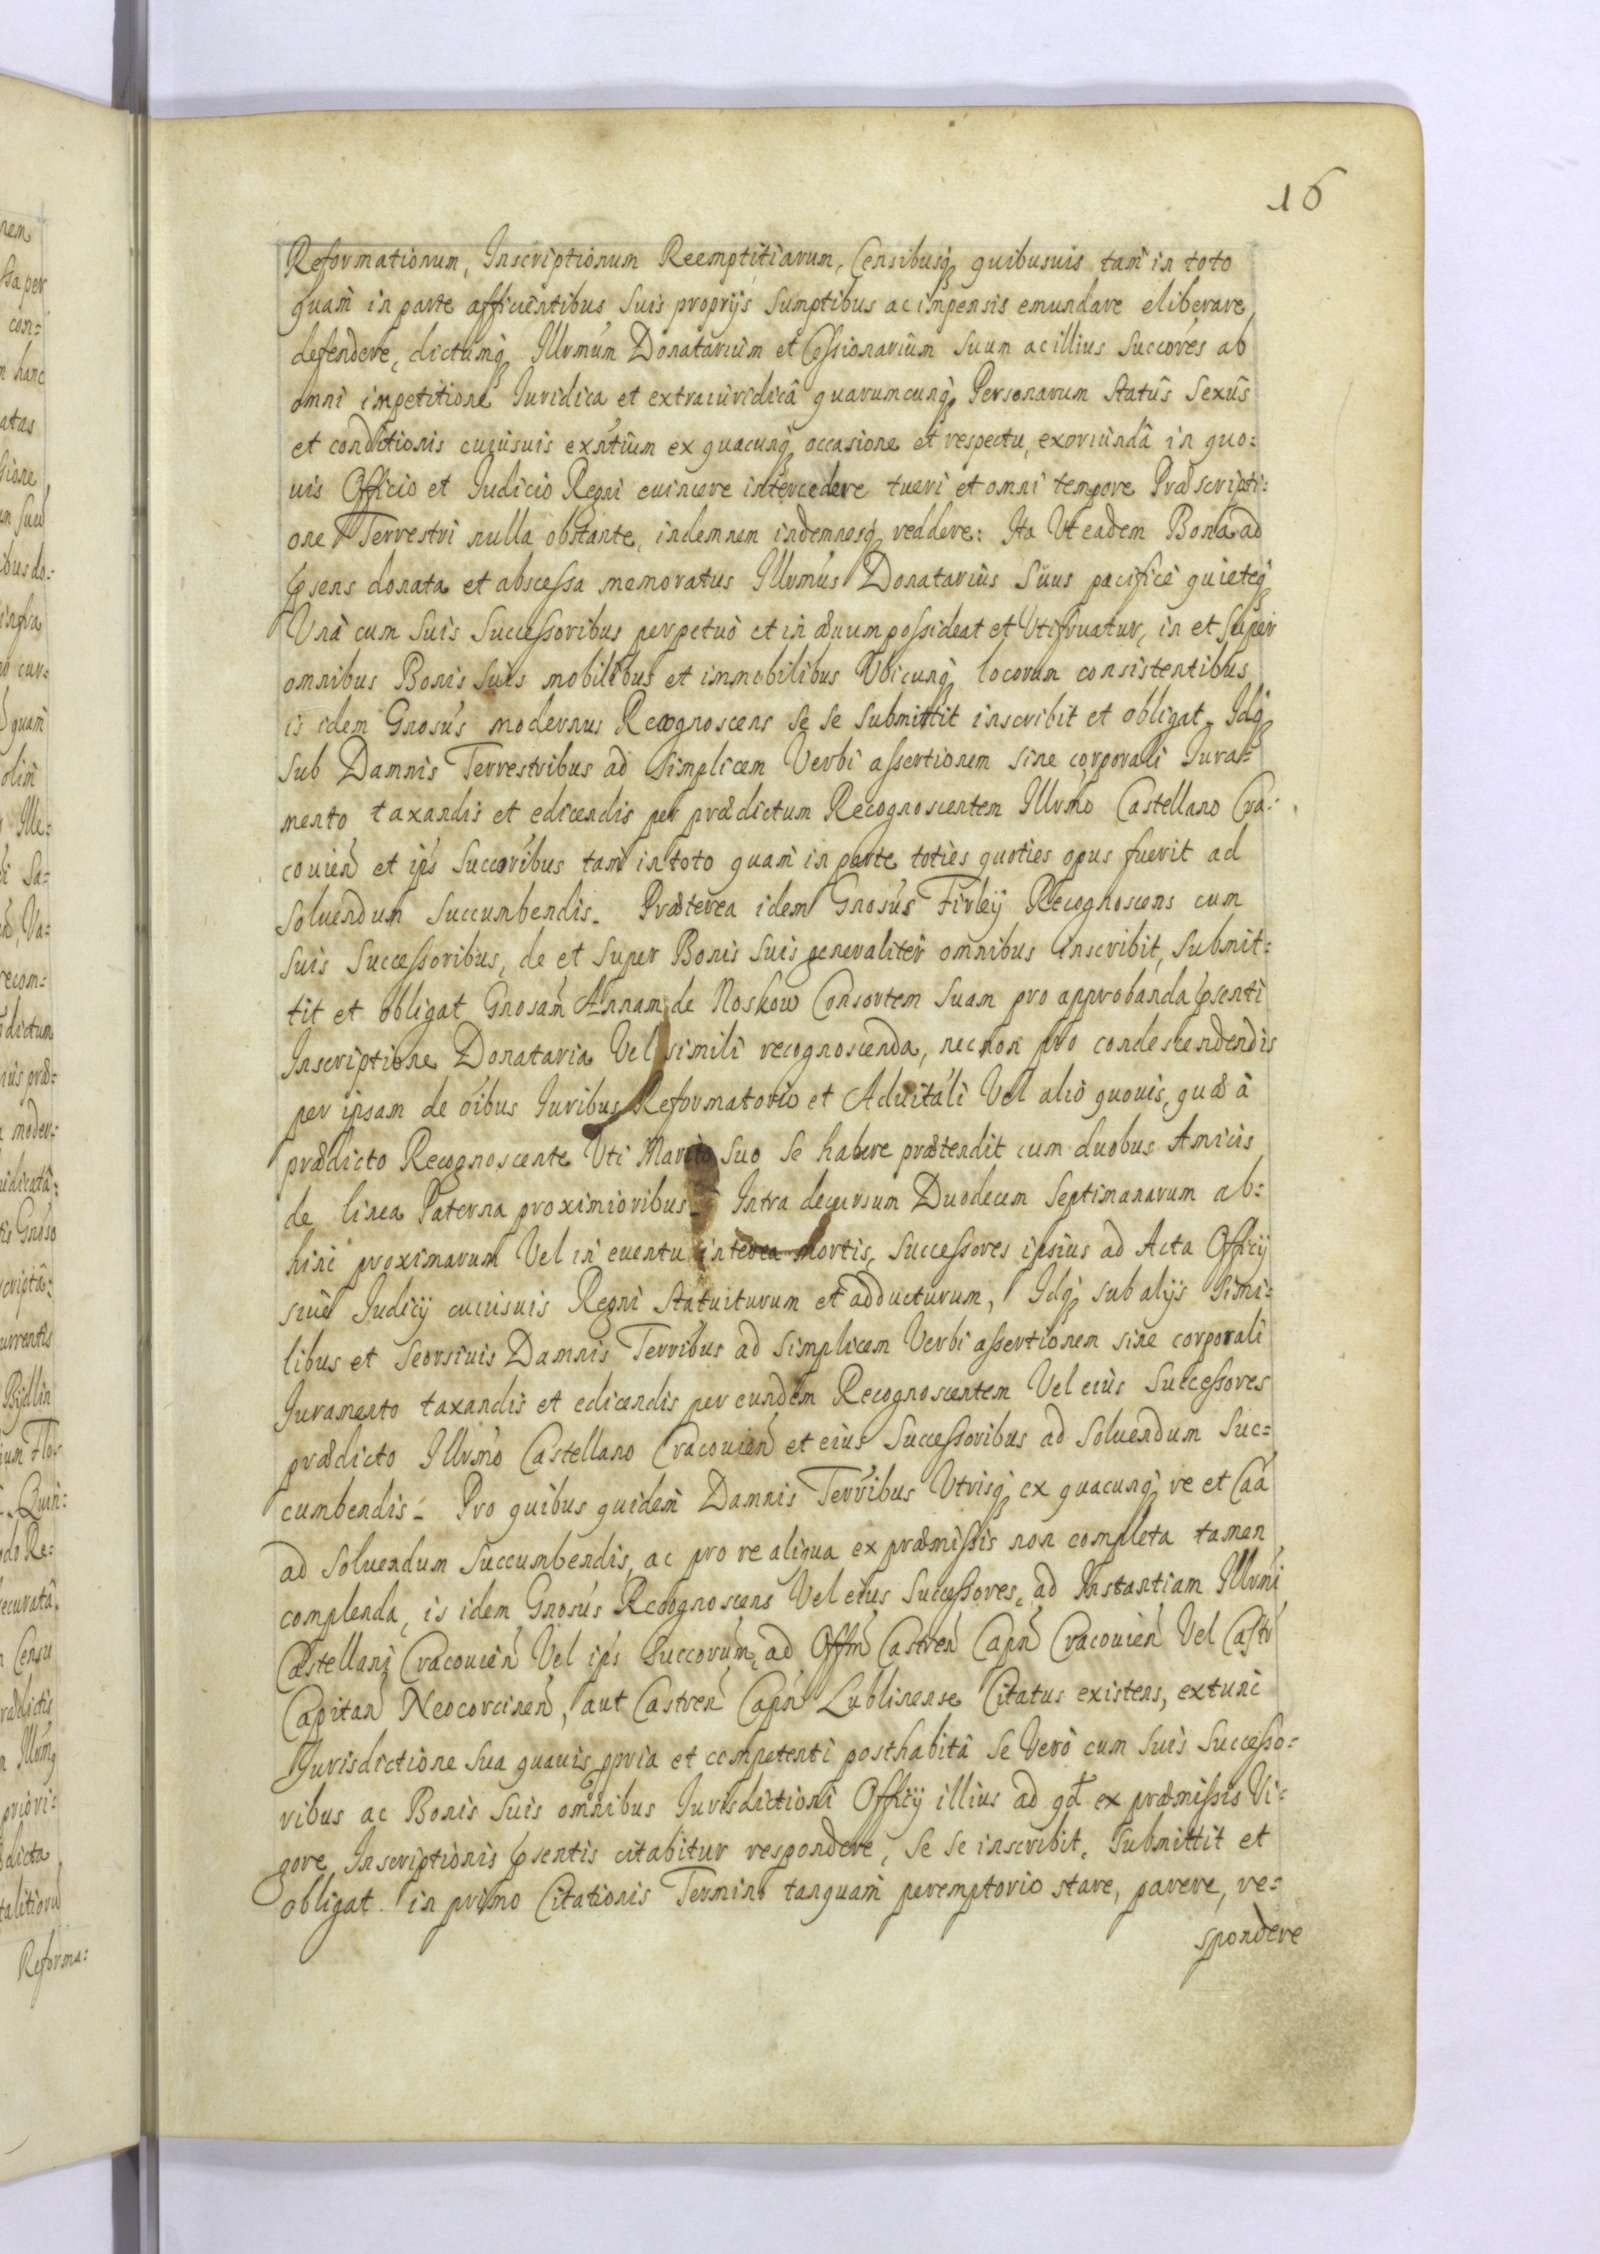 16
Reformationum, Inscriptionum Reemptitiarum, Censibusq; quibusuis tam in toto
quam in parte afficientibus suis proprijs sumptibus ac impensis emundare eliberare,
defendere, dictumq; Illrmum Donatarium et Cessionarium suum ac illius succores ab
omni impetitione Iuridica et extraiuridicâ quarumcunq; Personarum statûs sexûs
et conditionis cuiusuis exntium ex quacunq; occasione et respectu, exoriundâ in quo=
uis Officio et Iudicio Regni euincere intercedere tueri et omni tempore Præscripti=
one Terrestri nulla obstante, indemnem indemnesq; reddere: Ita Vt eadem Bona ad
psens donata et abscessa memoratus Illrmus Donatarius suus pacificè quieteq;
Vnà cum suis Successoribus perpetuò et in æuum possideat et Vtifruatur, in et super
omnibus Bonis suis mobilibus et immobilibus Vbicunq; locorum consistentibus
is idem Gnosus modernus Recognoscens se se submittit inscribit et obligat. Idq;
sub Damnis Terrestribus ad simplicem Verbi assertionem sine corporali Iura=
mento taxandis et edicendis per prædictum Recognoscentem Illrmo Castellano Cra=
couien et ips succoribus tam in toto quam in parte toties quoties opus fuerit ad
soluendum succumbendis. Præterea idem Gnosus Firleÿ Recognoscens cum
suis Successoribus, de et super Bonis suis generaliter omnibus inscribit, submit=
tit et obligat Gnosam Annam de Noskow Consortem suam pro approbanda psenti
Inscriptione Donataria Vel simili recognoscenda, necnon pro condescendendis
per ipsam de oibus Iuribus Reformatorio et Aduitali Vel aliò quouis, quæ à
prædicto Recognoscente Vti Marito suo se habere prætendit cum duobus Amicis
de linea Paterna proximioribus. Intra decursum Duodecem Septimanarum ab=
hinc proximarum Vel in euentu interea mortis, successores ipsius ad Acta Officij
siue Iudicij cuiusuis Regni statuiturum et adducturum, Idq; sub alijs simi=
libus et seorsiuis Damnis Terribus ad simplicem Verbi assertionem sine corporali
Iuramento taxandis et edicendis per eundem Recognoscentem Vel eius Successores
prædicto Illrmo Castellano Cracouien et eius Successoribus ad soluendum suc=
cumbendis. Pro quibus quidem Damnis Terribus Vtrisq; ex quacunq; re et Caa
ad soluendum succumbendis, ac pro re aliqua ex præmissis non completa tamen
complenda, is idem Gnosus Recognoscens Vel eius Successores, ad Instantiam Illrmi
Castellani Cracouien Vel ips Succorum, ad Offm Castren Capn Cracouien Vel Castr
Capitan Neocorcinen, aut Castren Capn Lublinense Citatus existens, extunc
Iurisdictione sua quauis ppria et competenti posthabitâ se Verò cum suis Successo=
ribus ac Bonis suis omnibus Iurisdictioni Officij illius ad qd ex præmissis Vi=
gore Inscriptionis psentis citabitur respondere, se se inscribit, submittit et
obligat. in primo Citationis Termino tanquam peremptorio stare, parere, re=
spondere